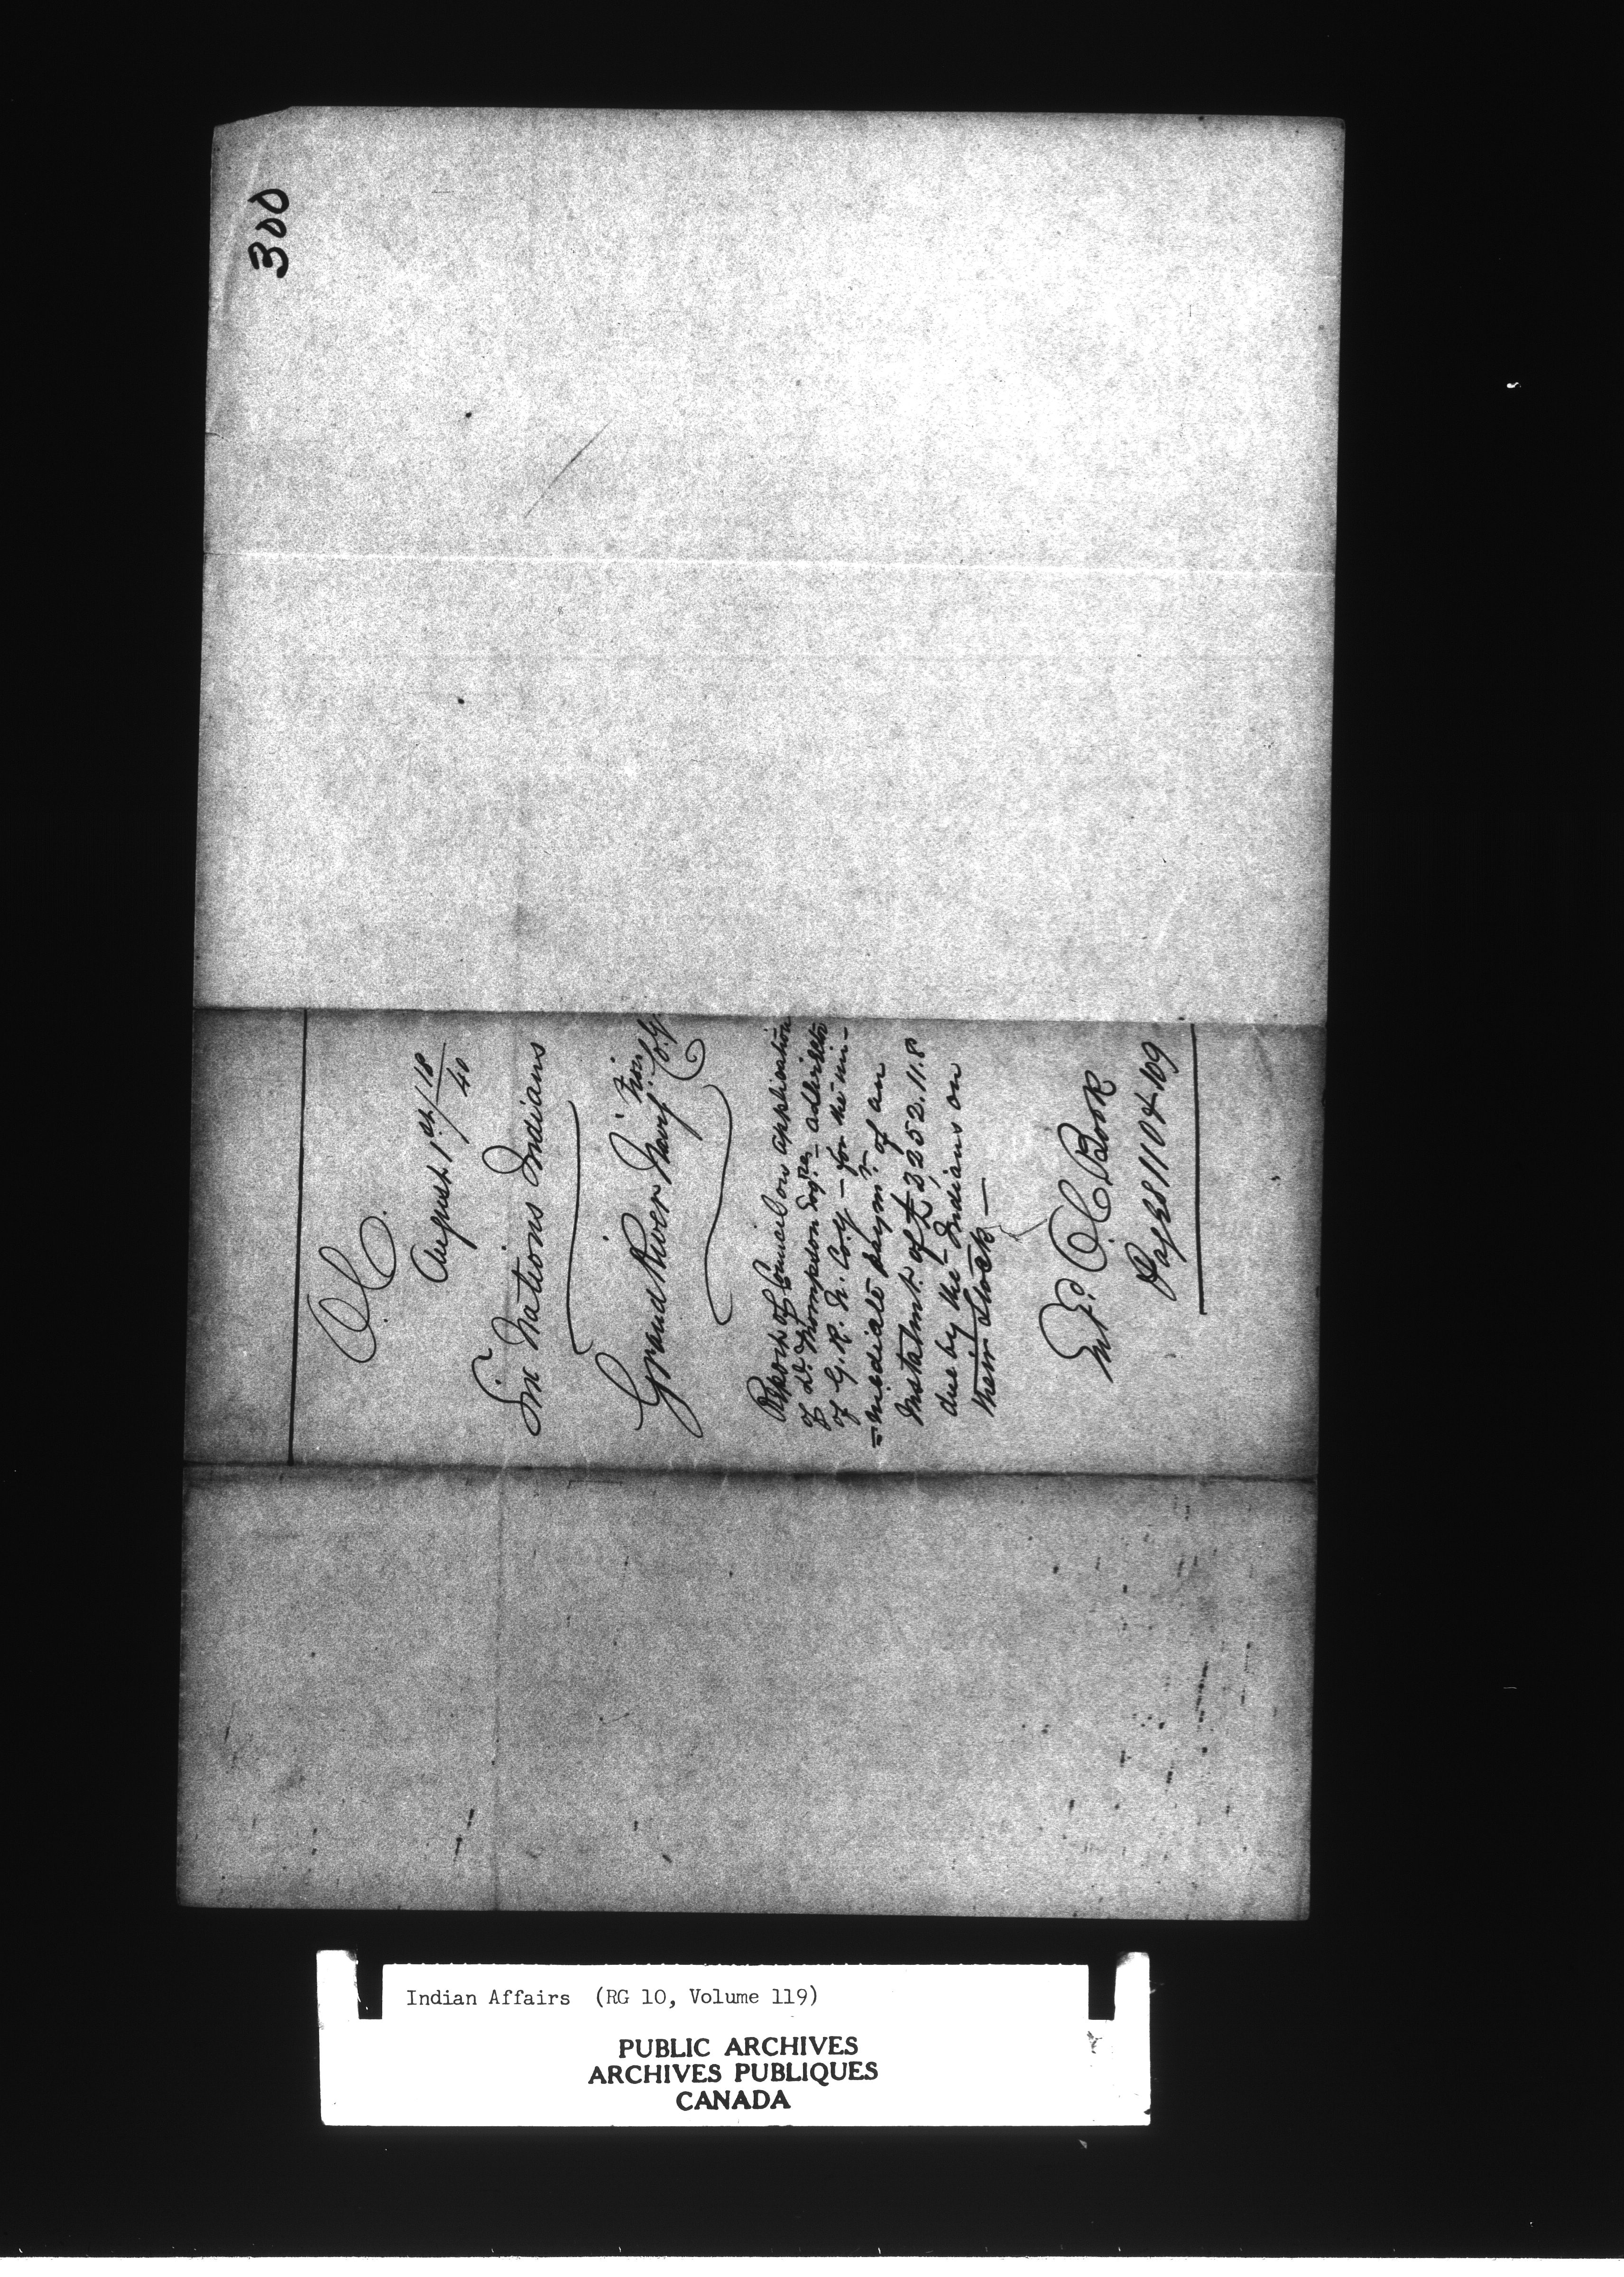 300
O.C.
August 1st 18/40
Six Nations Indians
Grand River Navn. Coy
Report of Council on application
of D. Thompson Esqre
of G. R. N. Coy — for the im-
=mediate paymt. of an
Instalmt. of £3252.11.8
due by the Indians on
their Stock —
Entd. O.C. Book
Pages 110 & 109
Indian Affairs (RG 10, Volume 119)
PUBLIC ARCHIVES
ARCHIVES PUBLIQUES
CANADA